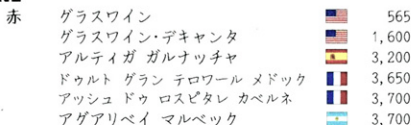 赤 グラスワイン 565
グラスワイン・デキャンタ 1,600
アルティガ ガルナッチャ 3,200
ドゥルト グラン テロワール メドック 3,650
アッシュ ドゥ ロスピタレ カベルネ 3,700
アグアリベイ マルベック 3,700